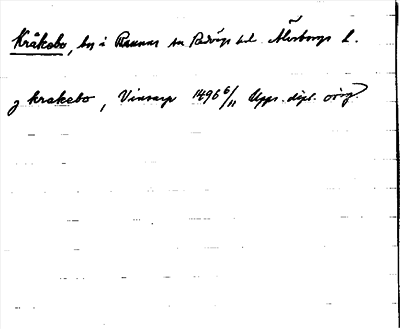 Kråkebo, by i Rannas sn Redvägs hd. Älvsborgs l.
j krakebo, Vinsarp 1496 6/11 Upps. dipl. orig.